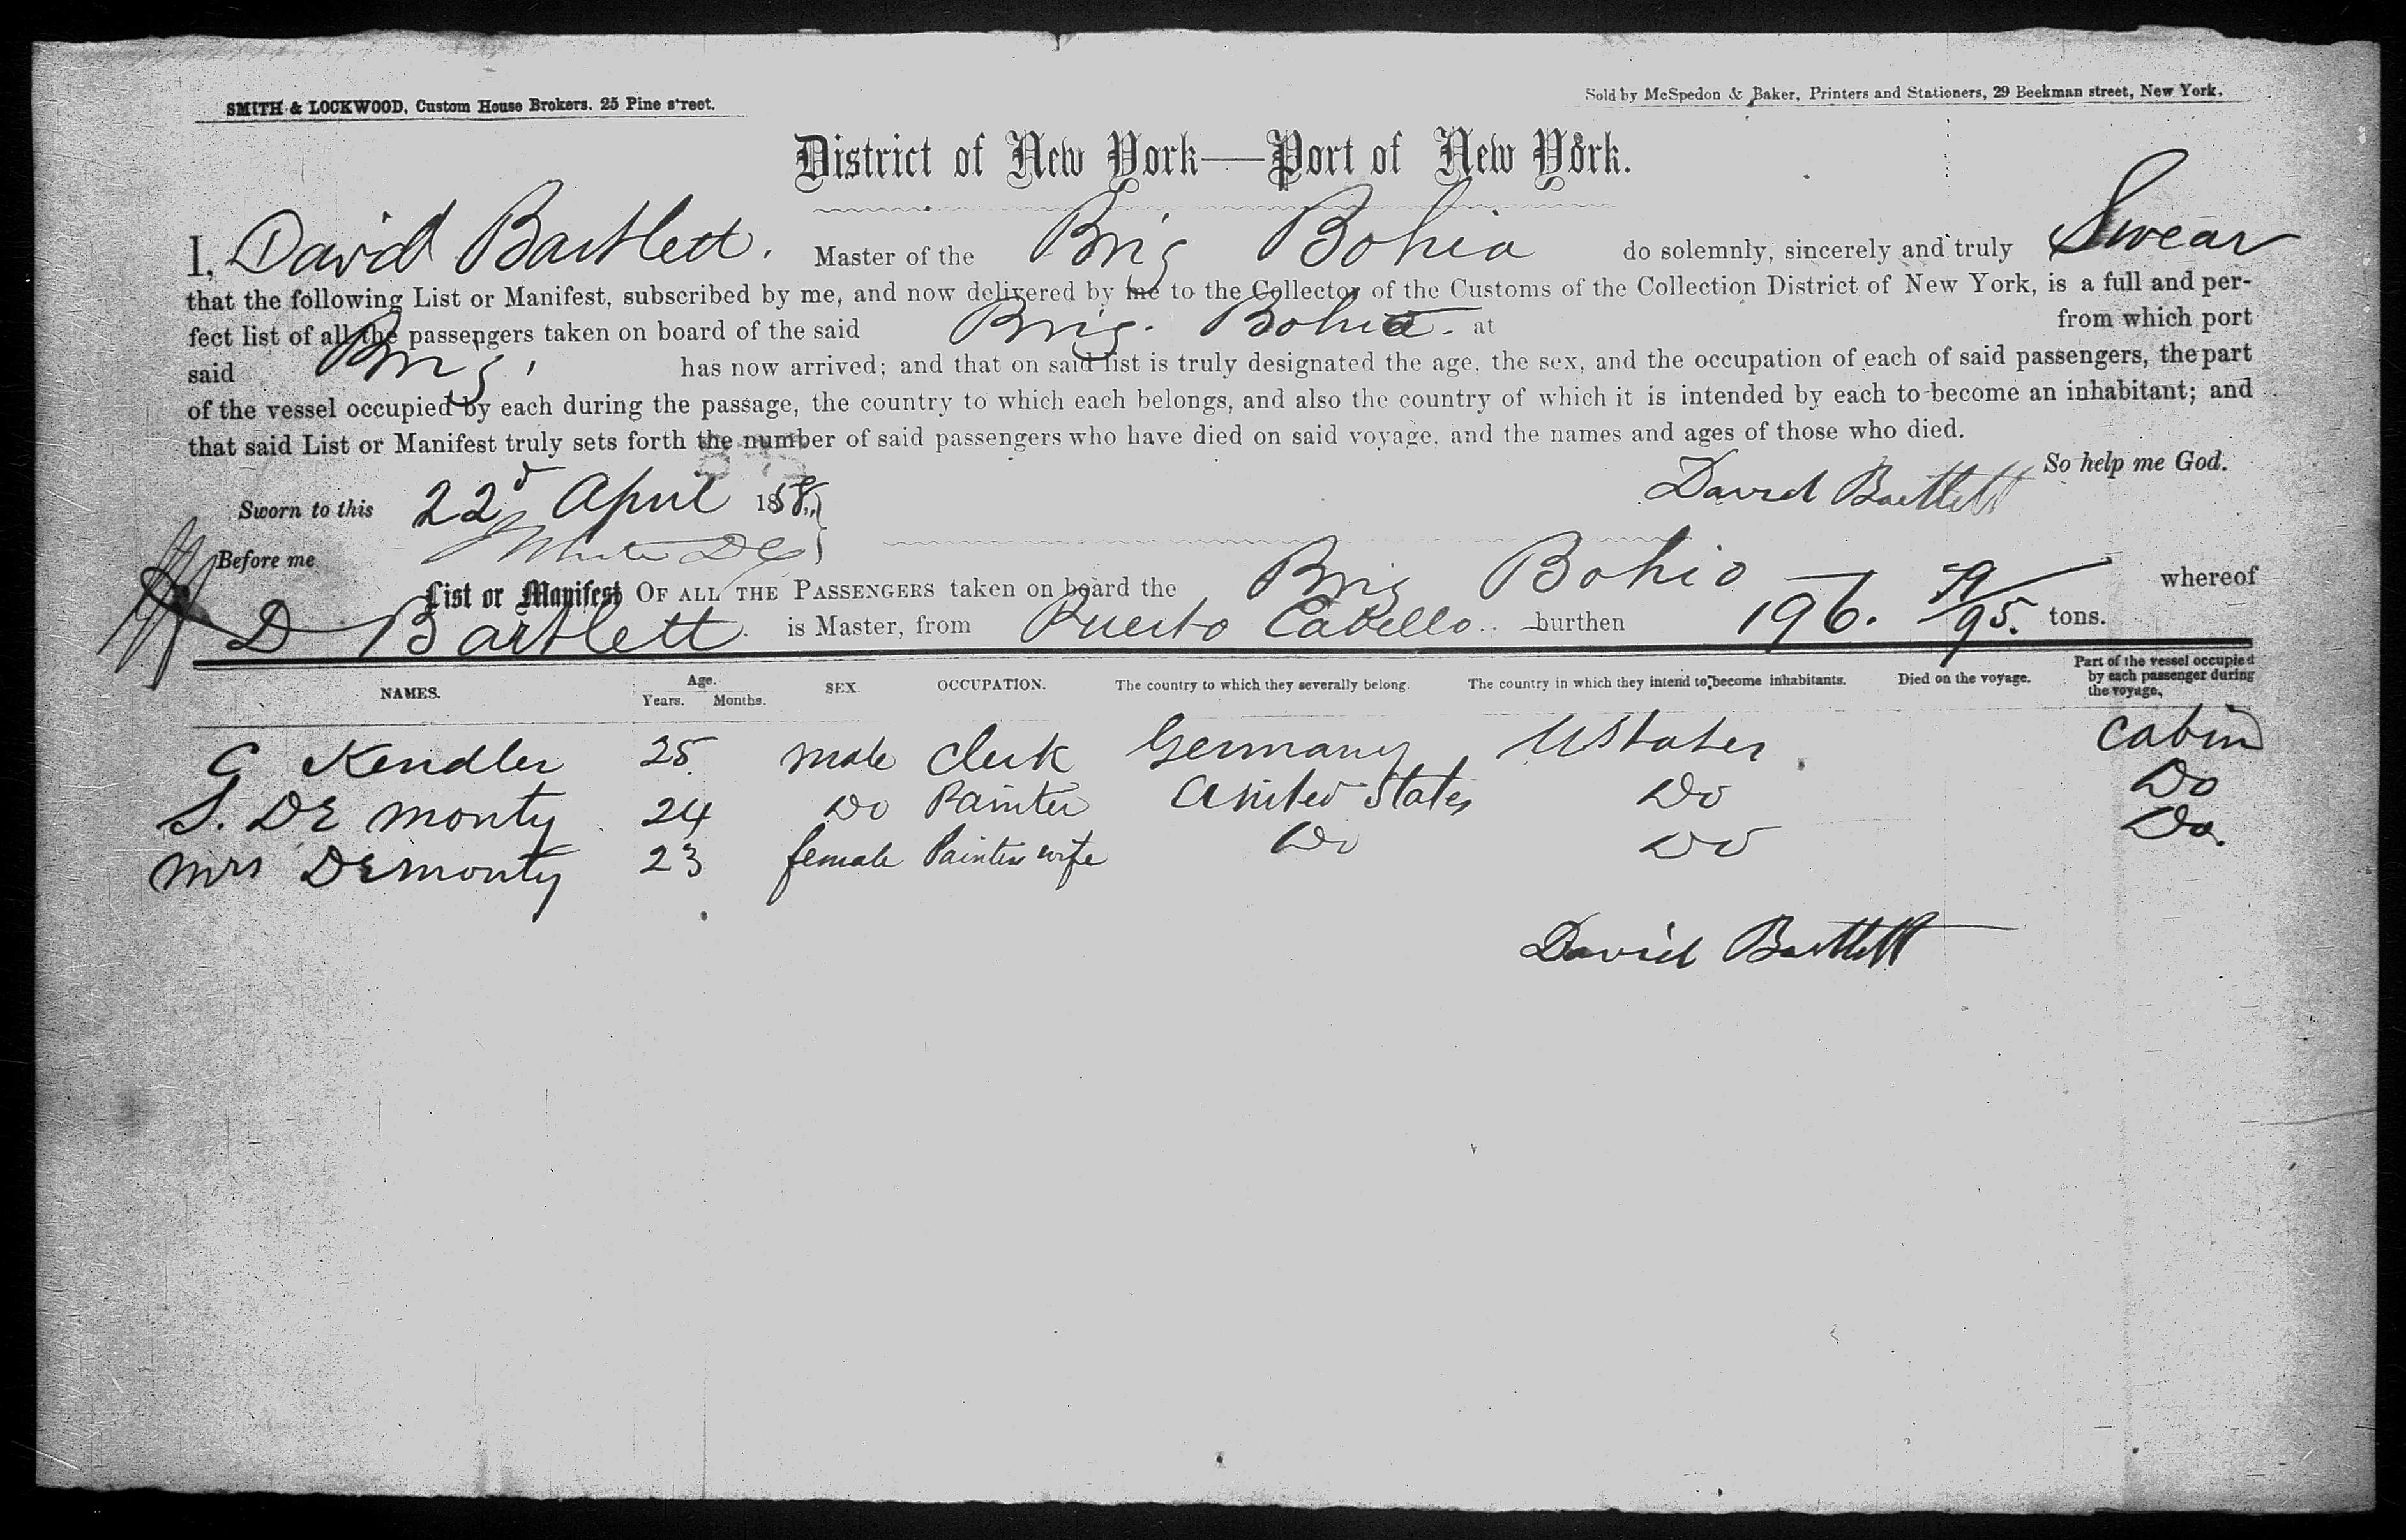 SMITH & LOCKWOOD, Custom House Brokers. 25 Pine street.
Sold by McSpedon & Baker, Printers and Stationers, 29 Beekman street, New York.
District of New York—Port of New York.
I, David Bartlett. Master of the Brig Bohio do solemnly, sincerely and truly Swear
that the following List or Manifest, subscribed by me, and now delivered by me to the Collector of the Customs of the Collection District of New York, is a full and per-
fect list of all the passengers taken on board of the said Brig. Bohio. at from which port
said Brig has now arrived; and that on said list is truly designated the age, the sex, and the occupation of each of said passengers, the part
of the vessel occupied by each during the passage, the country to which each belongs, and also the country of which it is intended by each to become an inhabitant; and
that said List or Manifest truly sets forth the number of said passengers who have died on said voyage, and the names and ages of those who died.
So help me God.
David Bartlett
Sworn to this 22d April 1858
Before me
List or Manifest OF ALL THE PASSENGERS taken on board the Brig Bohio — whereof
D Bartlett is Master, from Puerto Cabello.. burthen 196. /95. tons.
NAMES. Age. Years. Months. SEX. OCCUPATION. The country to which they severally belong. The country in which they intend to become inhabitants. Died on the voyage. Part of the vessel occupied by each passenger during the voyage.
G Kendler 25 male Clerk Germany UStates Cabin
S. DE monty 24 Do Painter United States Do Do
mrs DEmonty 23 female Painters wife Do Do Do.
David Bartlett